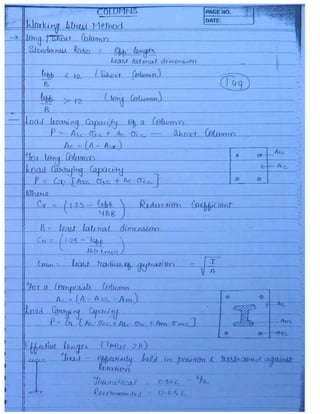 COLUMNS
PAGE NO.
DATE:
Working Stress Method
→ Long / Short Column
Slenderness Ratio = Eff. length
Least lateral dimension
leff / B < 12 (Short Column)
149
leff / B > 12 (Long Column)
Load Carrying Capacity of a Column
P = Asc σsc + Ac σcc — Short Column
Ac = (A - Asc)
For long Column
Load Carrying Capacity
P = Cr [Asc σsc + Ac σcc]
Asc
Ac
Where
Cr = (1.25 - leff / 48B) Reduction Coefficient
B = least lateral dimension
Cr = (1.25 - leff / 160 rmin)
rmin = least radius of gyration = √ I / A
For a Composite Column
Ac = (A - Asc - Am)
Load Carrying Capacity
P = Cr [Ac σcc + Asc σsc + Am σmc]
Ac
Am
Asc
Effective length (Table)
Fixed - effectively held in position & restrained against
Rotation
Theoretical
Recommended - 0.65L